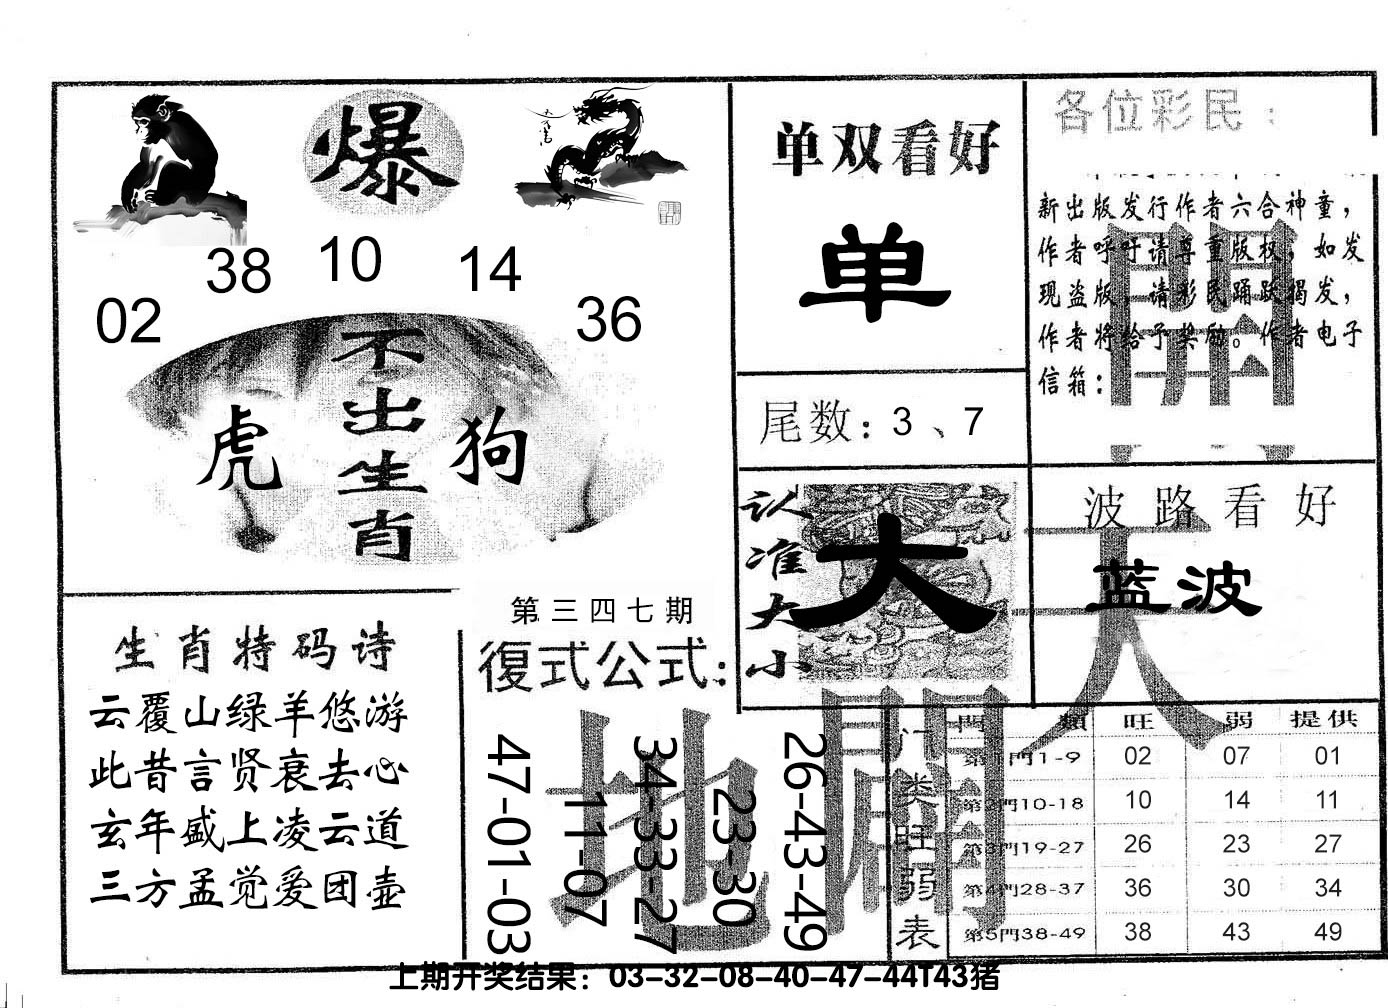 爆
38 10 14
02 36
不出生肖
虎 狗
生肖特码诗
云覆山绿羊悠游
此昔言贤衰去心
玄年盛上凌云道
三方孟觉爱团壶
第三四七期
復式公式:
47-01-03
11-07
34-33-27
23-30
26-43-49
单双看好
单
尾数: 3、7
认准大小
大
各位彩民:
新出版发行作者六合神童，
作者呼吁请尊重版权，如发
现盗版，请彩民踊跃揭发，
作者将给予奖励。作者电子
信箱:
波路看好
蓝波
天
開
地
闢
门类旺弱表
門類 旺 弱 提供
第1門1-9 02 07 01
第2門10-18 10 14 11
第3門19-27 26 23 27
第4門28-37 36 30 34
第5門38-49 38 43 49
上期开奖结果：03-32-08-40-47-44T43猪